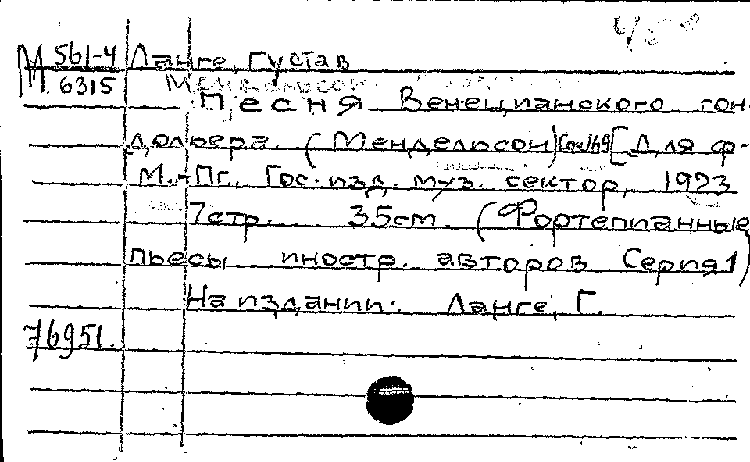 М 561-4 Ланге, Густав
6315 Мендельсон
Песня Венецианского гон-
дольера. (Мендельсон) [Для ф-
М.-Пг., Гос. изд. муз. сектор, 1923
7стр. 35см. (Фортепианные
пьесы иностр. авторов Серия 1)
На издании: Ланге, Г.
76951.